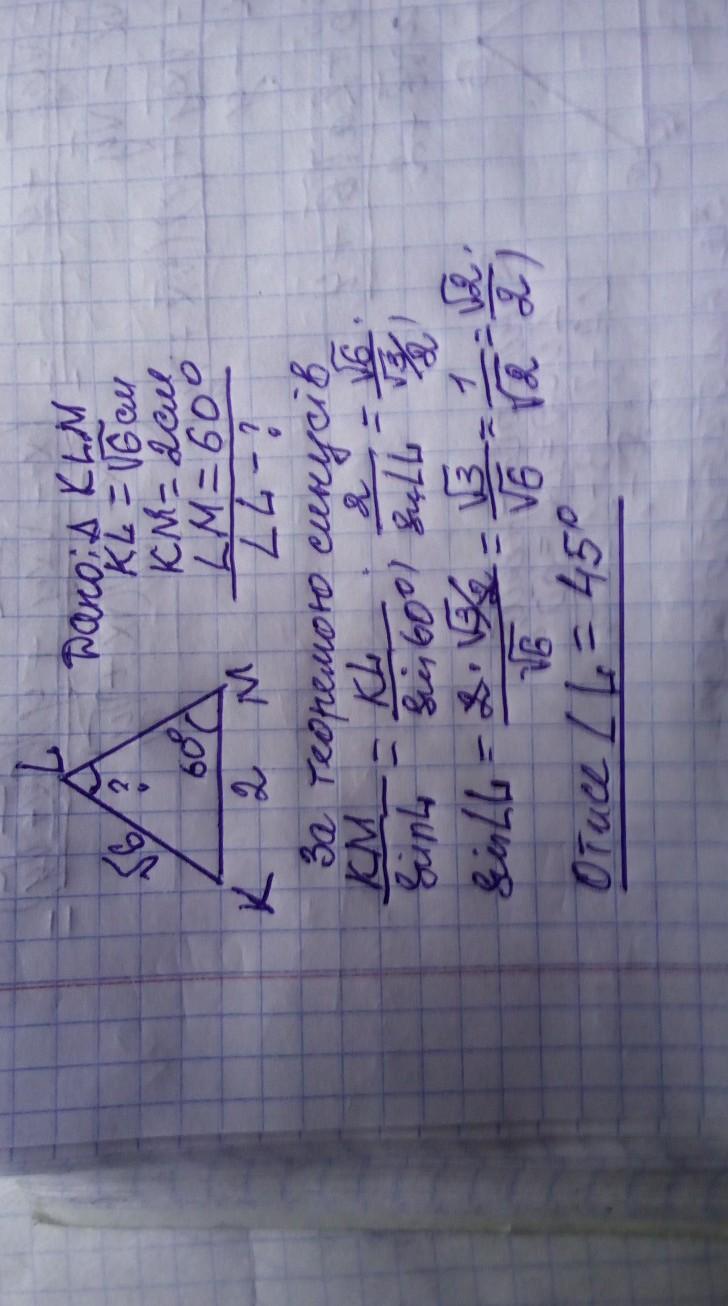 L
√6
?
60°
K
2
M
Дано: Δ KLM
KL = √6 см
KM = 2 см
∠M = 60°
∠L - ?
За теоремою синусів
KM/sin L = KL/sin 60°; 2/sin∠L = √6/(√3/2);
sin∠L = (2·√3/2)/√6 = √3/√6 = 1/√2 = √2/2;
Отже ∠L = 45°